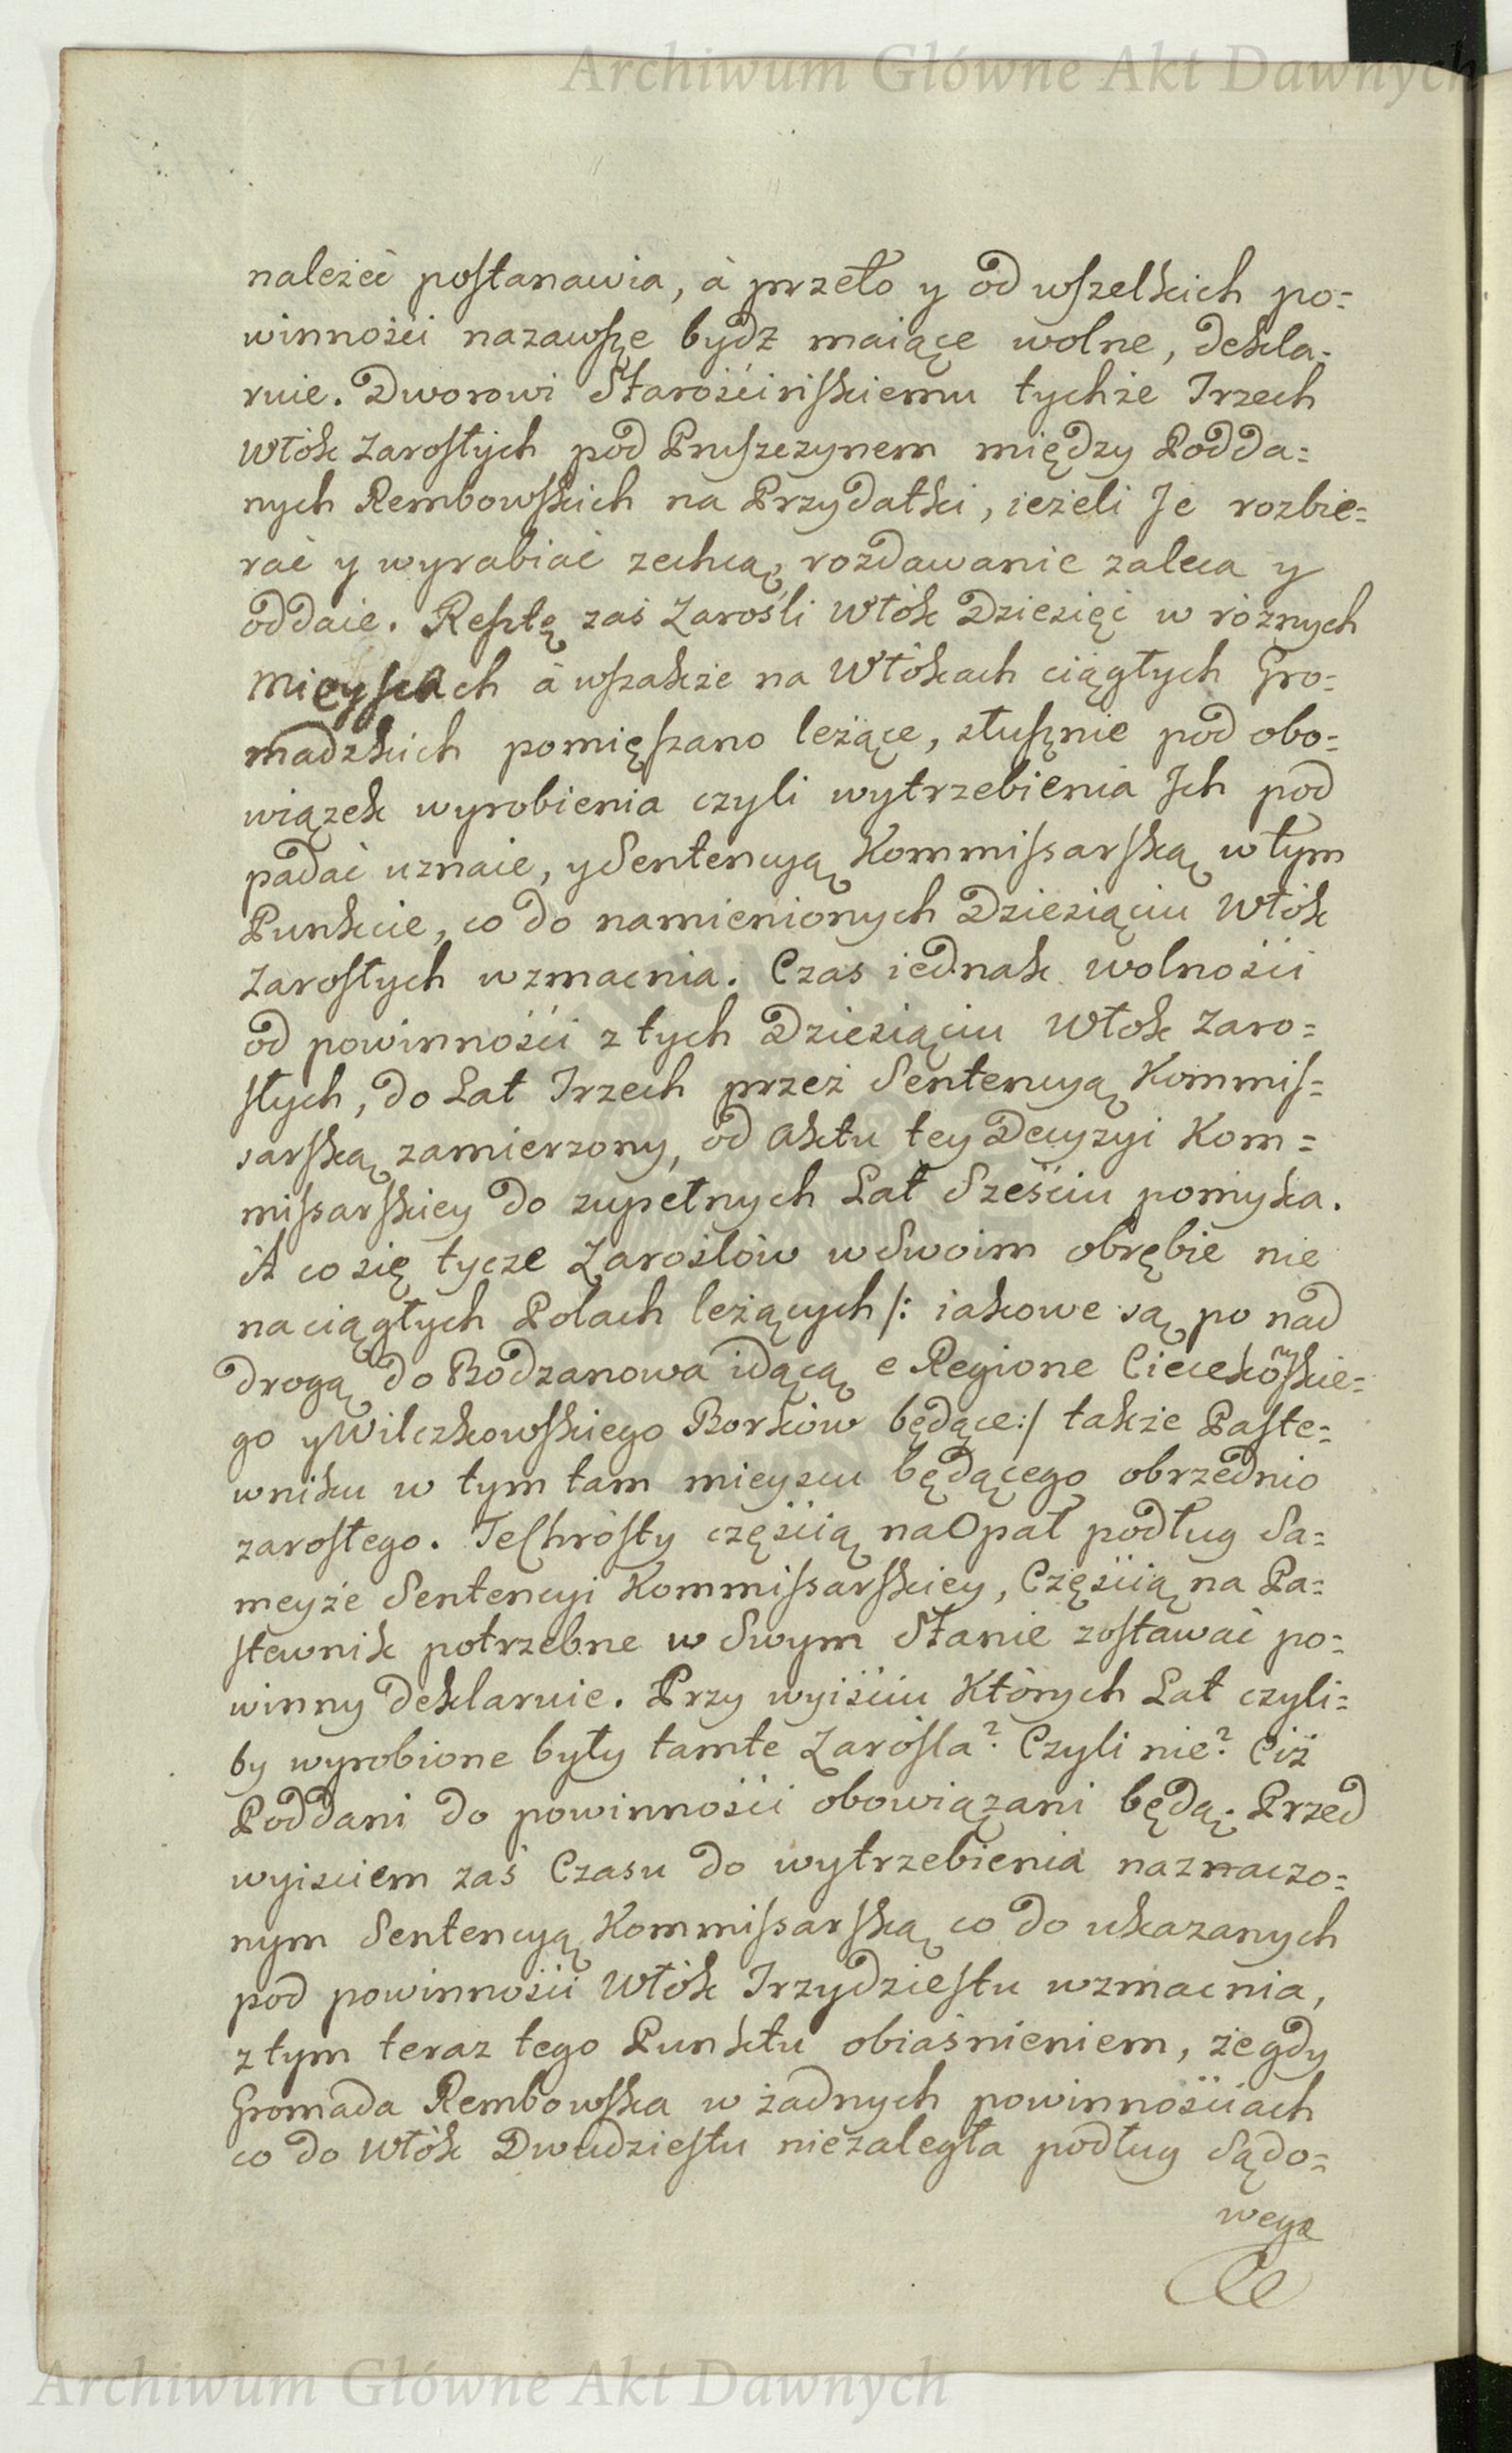 Archiwum Główne Akt Dawnych
należeć postanawia, à przeto y od wszelkich po=
winności nazawsze bydz maiące wolne, dekla=
ruie. Dworowi Starościńskiemu tychże Trzech
Włók Zarosłych pod Pruszczynem między Podda=
nych Rembowskich na Przydatki, ieżeli Je rozbie=
rać y wyrabiać zechcą, rozdawanie zaleca y
oddaie. Resztę zaś Zarośli Włók Dziesięć w różnych
Mieyscach à wszakże na Włókach ciągłych Gro=
madzkich pomięszano leżące, słusznie pod obo=
wiązek wyrobienia czyli wytrzebienia Jch pod
padać uznaie, y Sentencyą Kommissarską w tym
Punkcie, co do namienionych Dziesiąciu Włók
Zarosłych wzmacnia. Czas iednak wolności
od powinności z tych Dziesiąciu Włok Zaro=
słych, do Lat Trzech przez Sentencyą Kommis=
sarską zamierzony, od Aktu tey Decyzyi Kom=
missarskiey do zupełnych Lat Sześciu pomyka.
A co się tycze Zaroślów w Swoim obrębie nie
na ciągłych Polach leżących /: iakowe są po nad
drogą do Bodzanowa idącą e Regione Ciećkoskie=
go y Wilczkowskiego Borków będące :/ także Paste=
wniku w tym tam mieyscu będącego obrzednio
zarosłego. Te Chrósty częścią na Opał podług Sa=
meyże Sentencyi Kommissarskiey, Częścią na Pa=
stewnik potrzebne w Swym Stanie zostawać po=
winny deklaruie. Przy wyiściu Których Lat czyli=
by wyrobione były tamte Zarośla? Czyli nie? Ciż
Poddani do powinności obowiązani będą. Przed
wyisciem zaś Czasu do wytrzebienia naznaczo=
nym Sentencyą Kommissarską co do ukazanych
pod powinności Włók Trzydziestu wzmacnia,
z tym teraz tego Punktu obiaśnieniem, że gdy
Gromada Rembowska w żadnych powinnościach
co do Włók Dwudziestu niezaległa podług Sądo=
wego
Archiwum Główne Akt Dawnych